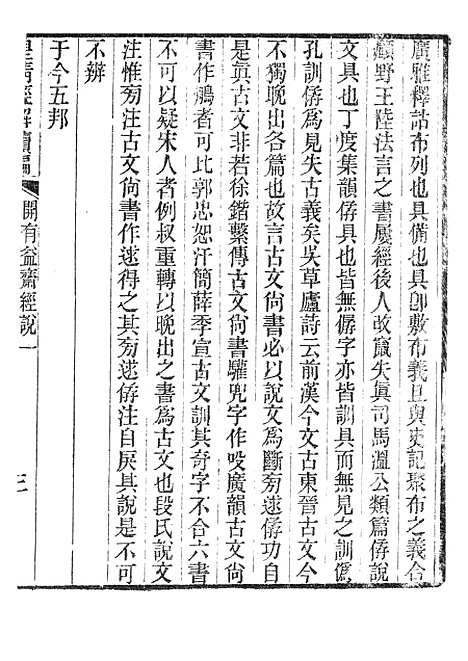 廣雅釋詁布列也具備也具卽敷布義且與史記聚布之義合
顧野王陸法言之書屢經後人改竄失眞司馬溫公類篇僝說
文具也丁度集韻僝具也皆無僝字亦皆訓具而無見之訓僞
孔訓僝爲見失古義矣吳草廬詩云前漢今文古東晉古文今
不獨晚出各篇也故言古文尙書必以說文爲斷旁逑僝功自
是眞古文非若徐鍇繫傳古文尙書驩兜字作吺廣韻古文尙
書作鵃者可比郭忠恕汗簡薛季宣古文訓其奇字不合六書
不可以疑宋人者例叔重轉以晚出之書爲古文也段氏說文
注惟旁注古文尙書作逑得之其旁逑僝注自戾其說是不可
不辨
于今五邦
皇淸經解續編
開有益齋經說一
三